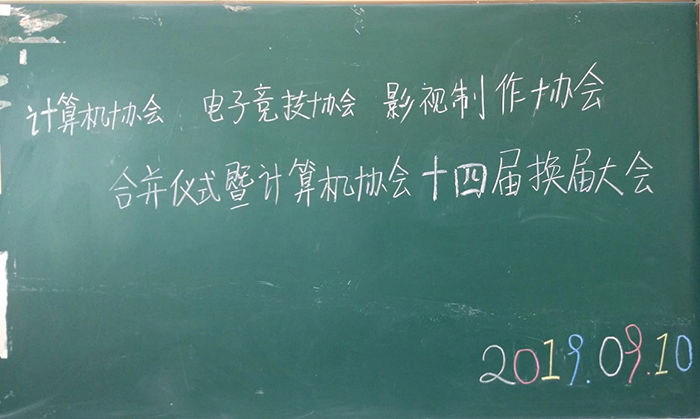 计算机协会 电子竞技协会 影视制作协会
合并仪式暨计算机协会十四届换届大会
2019.09.10